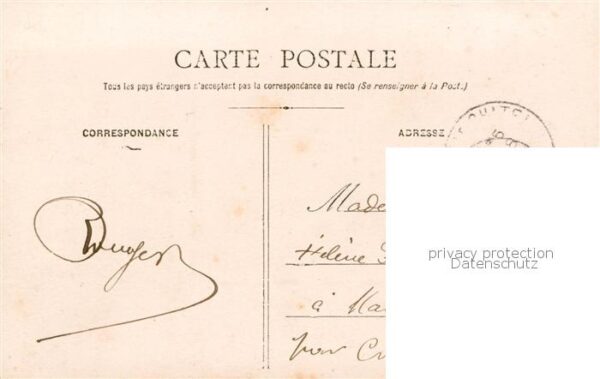 CARTE POSTALE
Tous les pays étrangers n'acceptent pas la correspondance au recto (Se renseigner à la Poste.)
CORRESPONDANCE
ADRESSE
Made
Hélène
à Ma
pour
privacy protection
Datenschutz